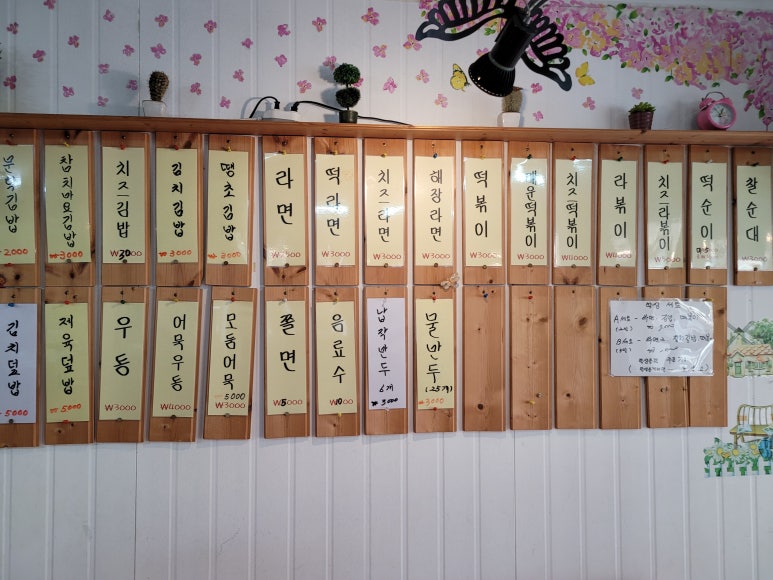 김밥
2000
참치마요김밥
₩3000
치즈김밥
₩3000
김치김밥
₩3000
땡초김밥
₩3000
라면
떡라면
₩3000
치즈라면
해장라면
₩3000
떡볶이
₩3000
매운떡볶이
₩3000
치즈떡볶이
₩4000
라볶이
₩3000
치즈라볶이
떡순이
찰순대
₩3000
김치덮밥
5000
제육덮밥
₩5000
우동
₩3000
어묵우동
₩4000
모둠어묵
5000
₩3000
쫄면
음료수
납작만두
6개
₩3000
물만두
(25개)
₩3000